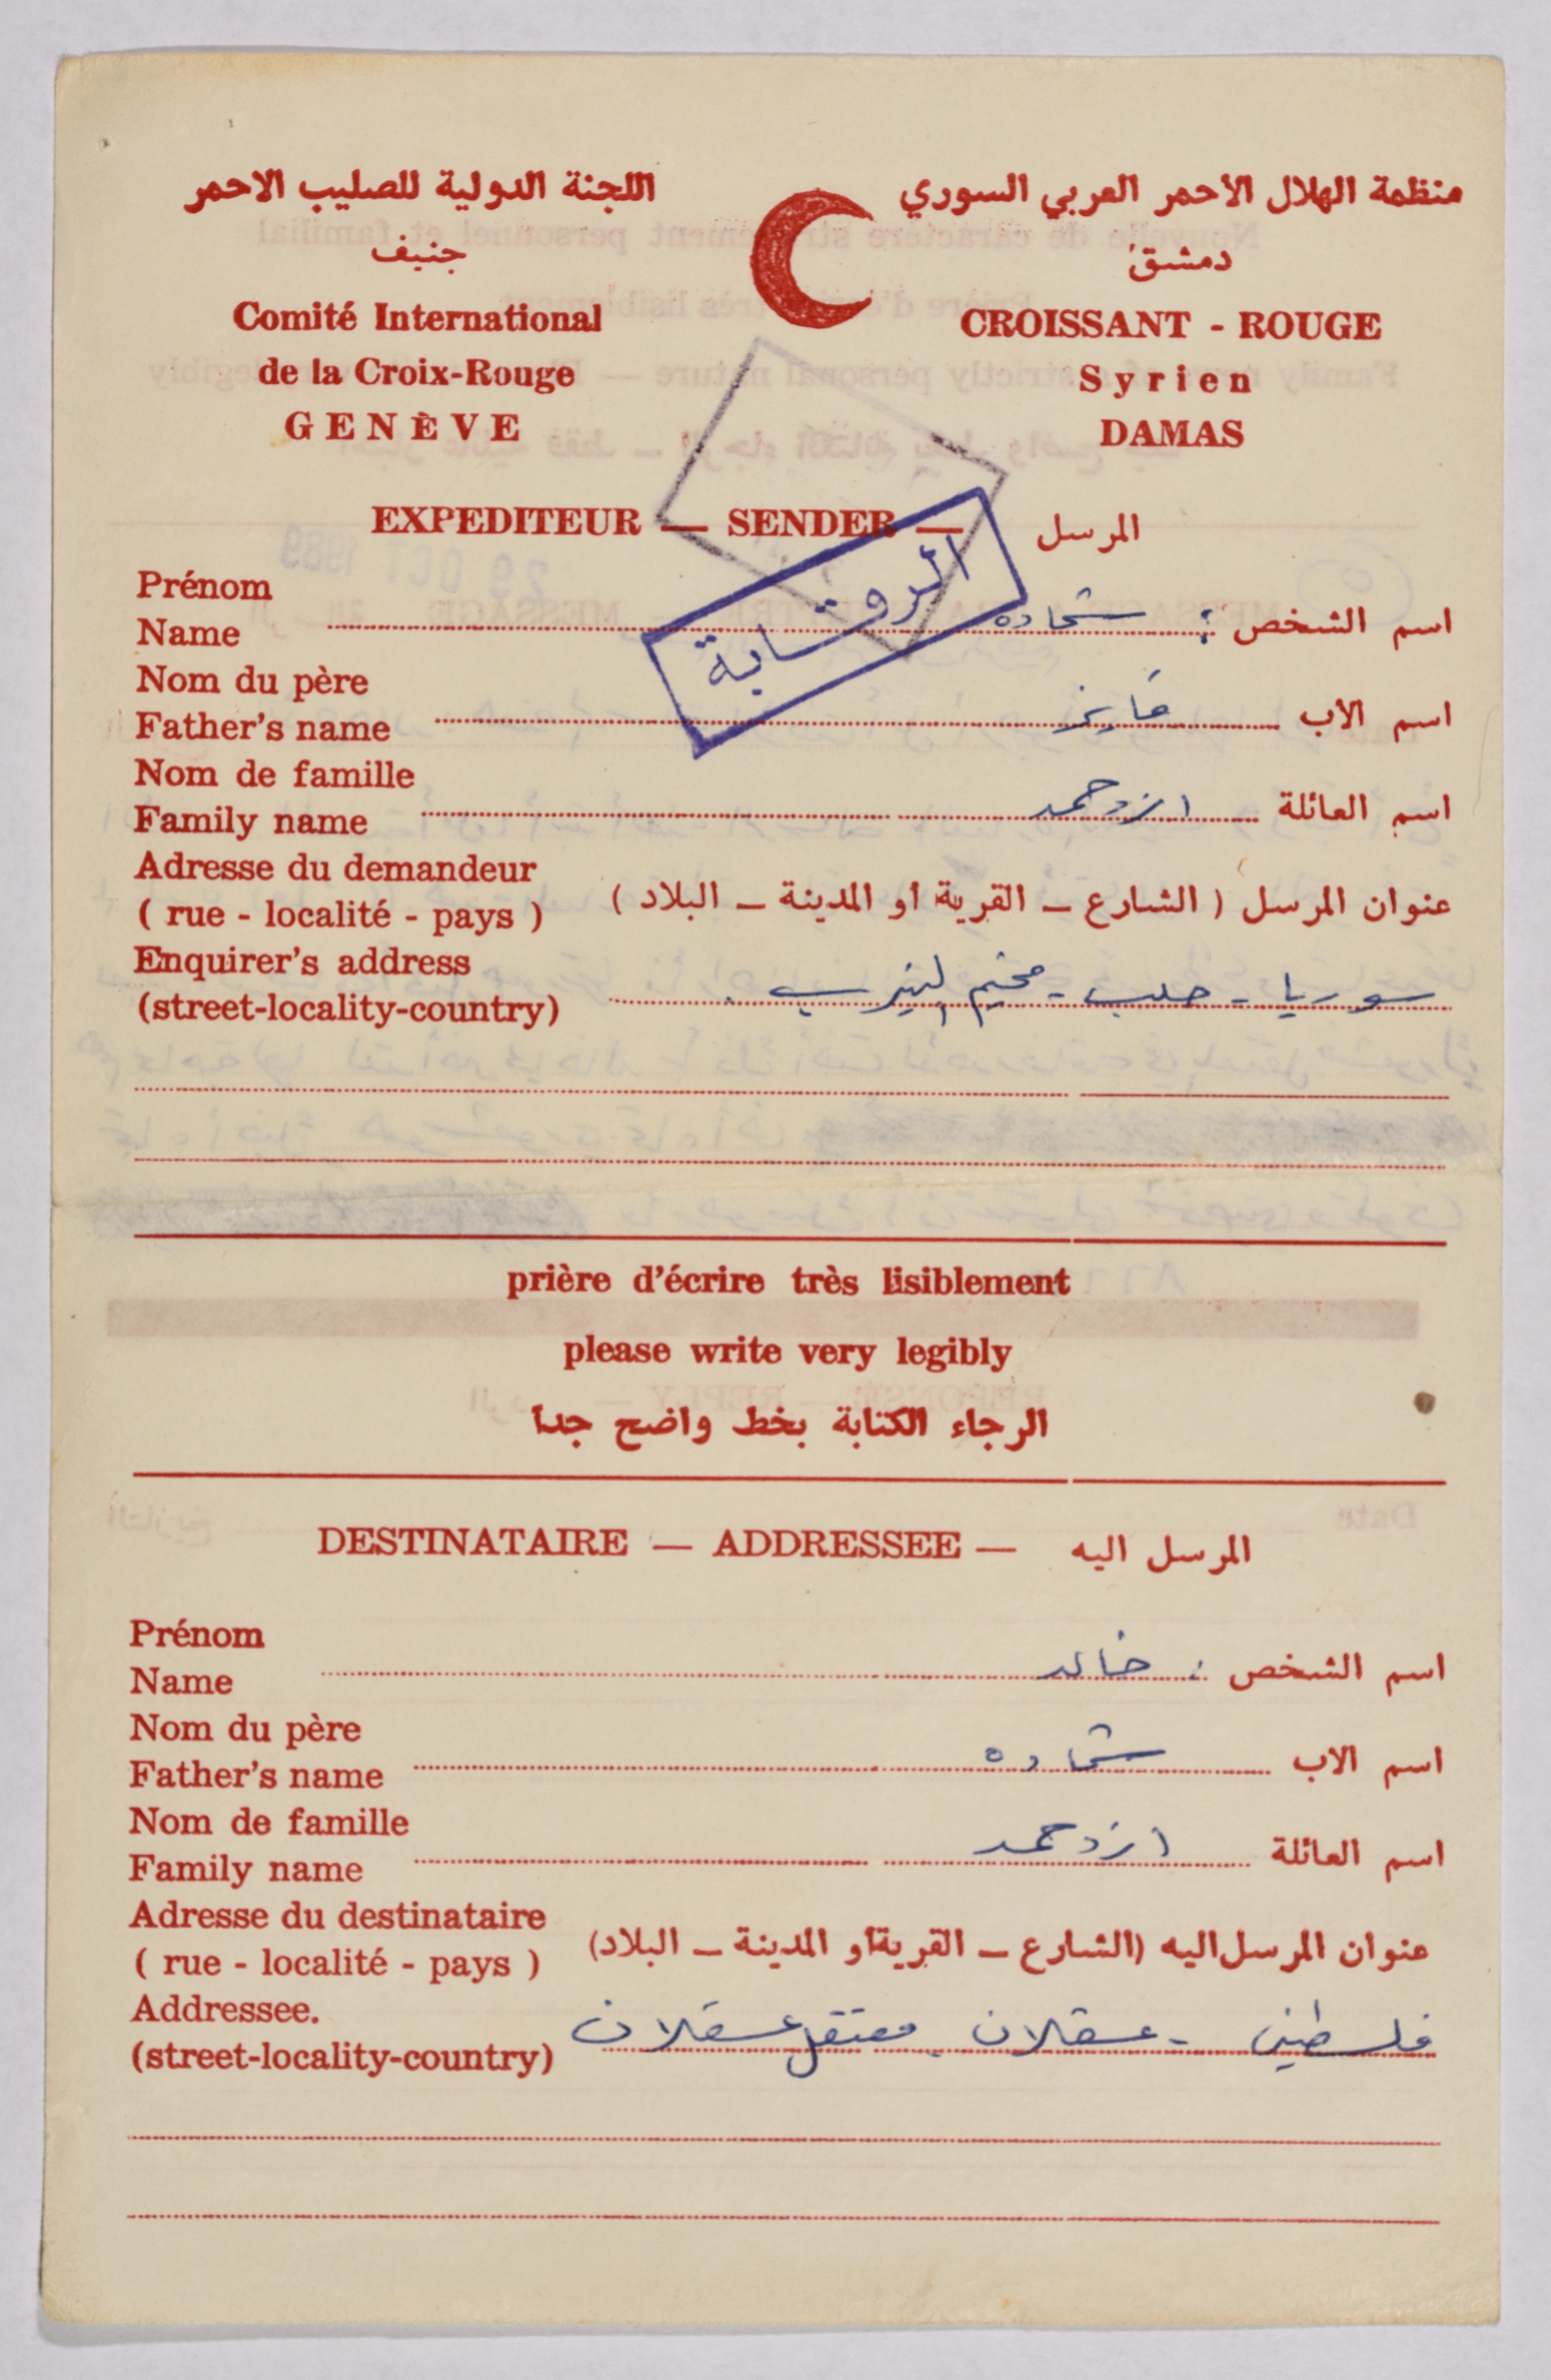 منظمة الهلال الاحمر العربي السوري
دمشق
CROISSANT - ROUGE
Syrien
DAMAS
اللجنة الدولية للصليب الاحمر
جنيف
Comité International
de la Croix-Rouge
GENÈVE
EXPEDITEUR — SENDER — المرسل
الرقابة
Prénom
Name اسم الشخص : شحاده
Nom du père
Father's name اسم الاب فايز
Nom de famille
Family name اسم العائلة
Adresse du demandeur
( rue - localité - pays ) عنوان المرسل ( الشارع – القرية او المدينة – البلاد )
Enquirer's address
(street-locality-country) سوريا - حلب - مخيم النيرب .
prière d'écrire très lisiblement
please write very legibly
الرجاء الكتابة بخط واضح جدا
DESTINATAIRE — ADDRESSEE — المرسل اليه
Prénom
Name اسم الشخص : خالد
Nom du père
Father's name اسم الاب شحاده
Nom de famille
Family name اسم العائلة
Adresse du destinataire
( rue - localité - pays ) عنوان المرسل اليه (الشارع – القرية او المدينة – البلاد)
Addressee.
(street-locality-country) فلسطين - عسقلان - معتقل عسقلان